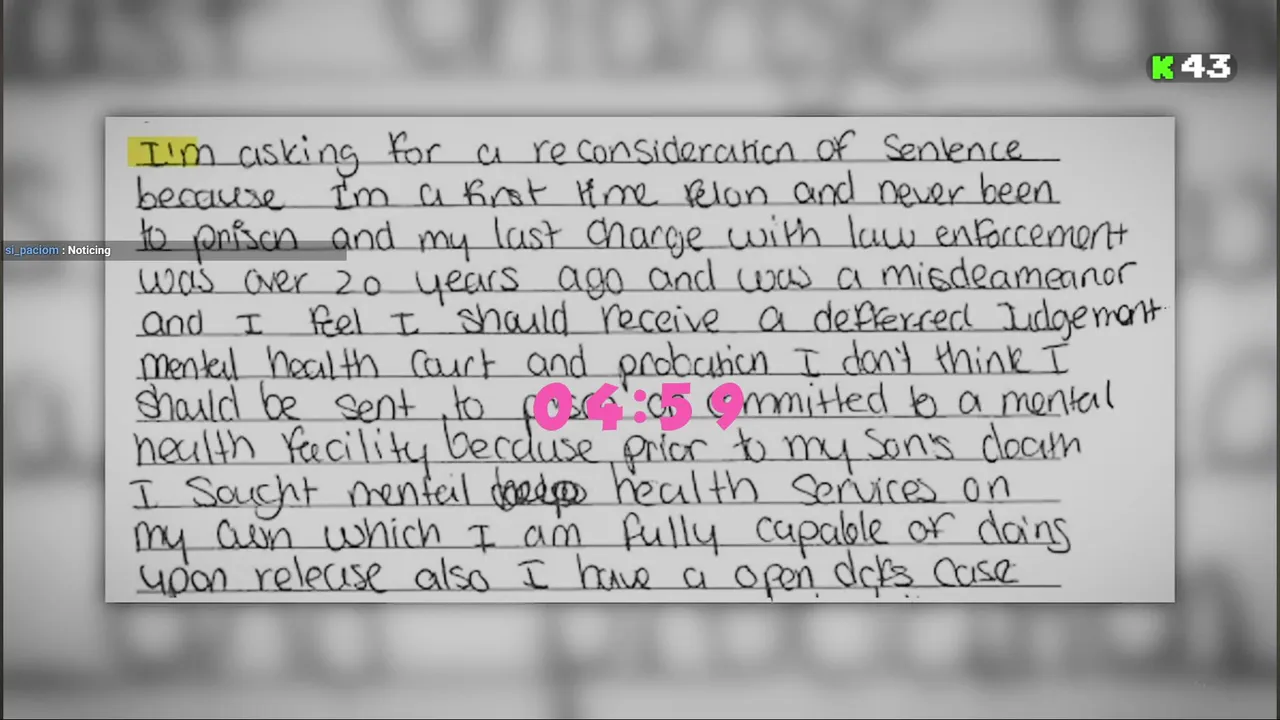 K 43
I'm asking for a reconsideration of Sentence
because I'm a first time felon and never been
to prison and my last charge with law enforcement
si_paciom : Noticing
was over 20 years ago and was a misdeameanor
and I feel I should receive a deferred Judgement
mental health Court and probation I don't think I
should be sent to prison or committed to a mental
04:59
health facility because prior to my son's death
I Sought mental health services on
my own which I am fully capable of doing
upon release also I have a open dcfs case